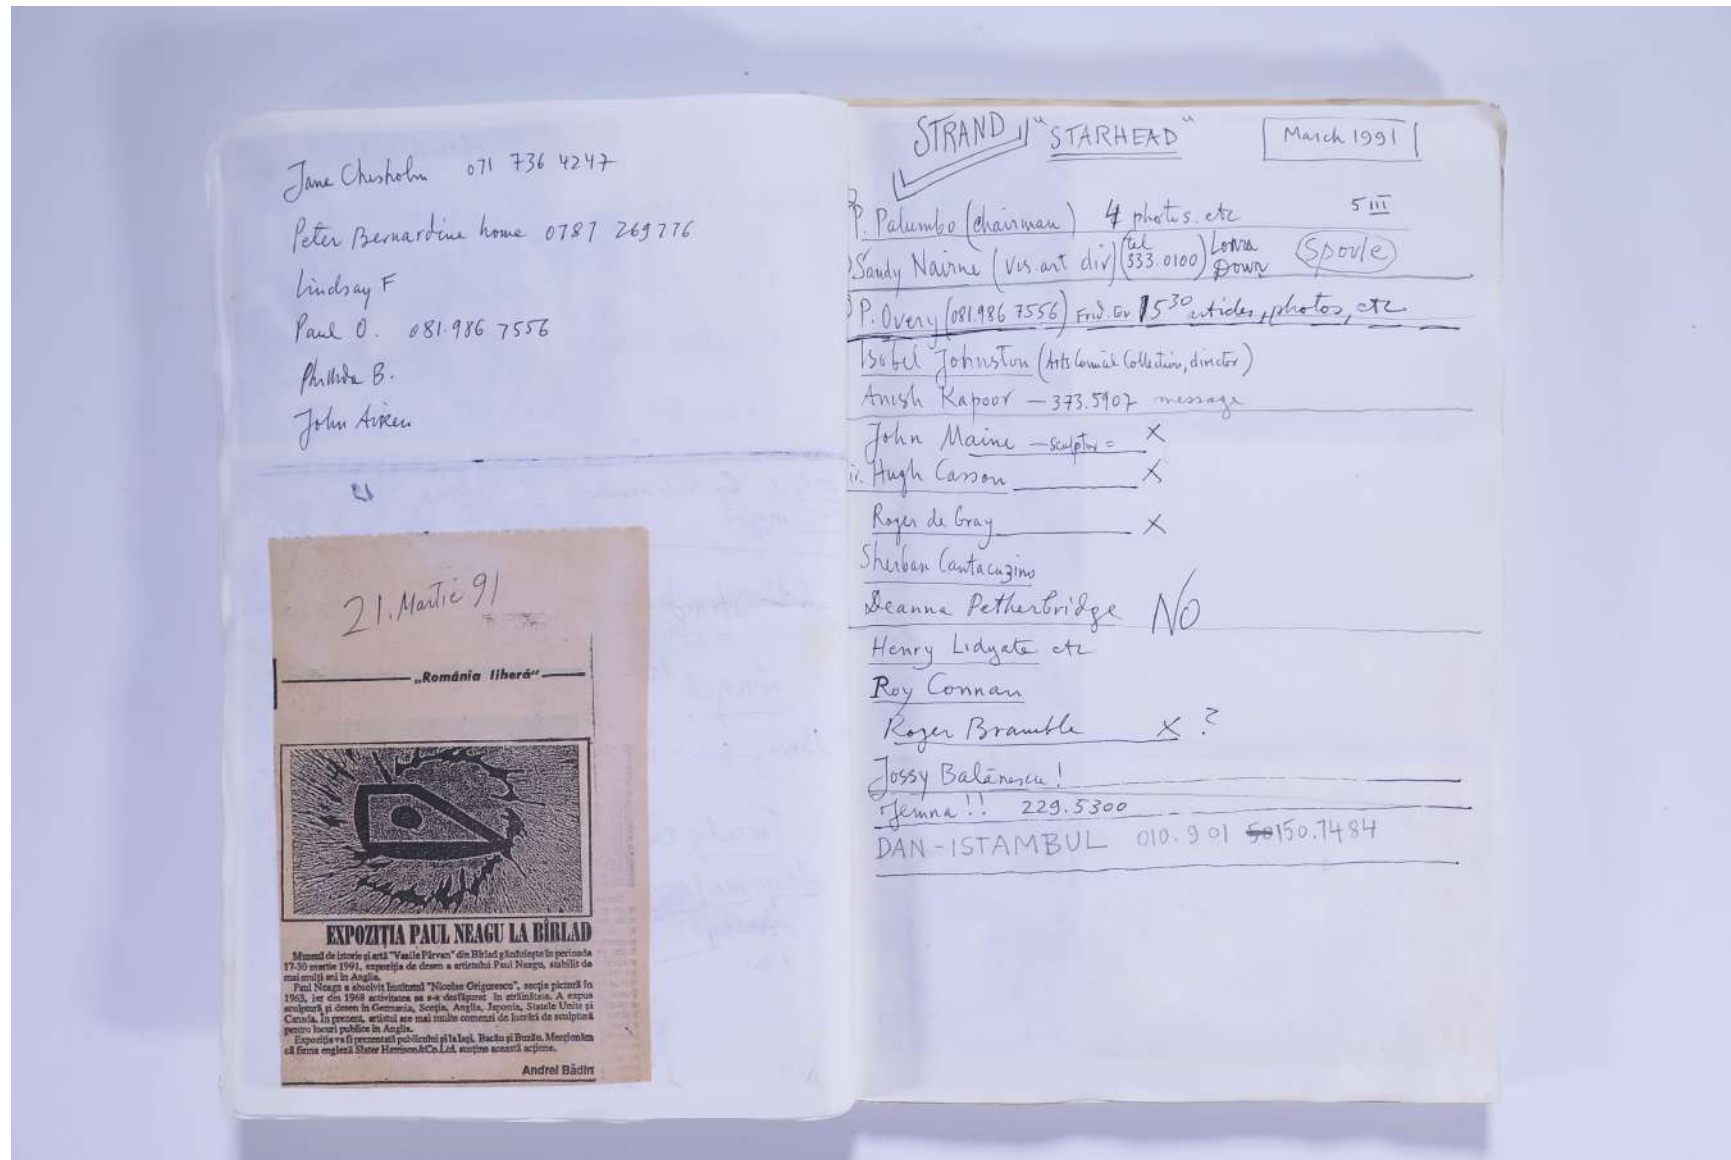 Jane Chisholm 071 736 4247
Peter Bernardine home 0787 269776
Lindsay F
Paul O. 081.986 7556
Phillida B.
John Aiken
21. Martie 91
„România liberă“
EXPOZIȚIA PAUL NEAGU LA BÎRLAD
Muzeul de istorie și artă "Vasile Pârvan" din Bîrlad găzduiește în perioada
17-30 martie 1991, expoziția de desen a artistului Paul Neagu, stabilit de
mai mulți ani în Anglia.
Paul Neagu a absolvit Institutul "Nicolae Grigorescu", secția pictură în
1963, iar din 1968 activitatea sa s-a desfășurat în străinătate. A expus
sculptură și desen în Germania, Scoția, Anglia, Japonia, Statele Unite și
Canada. În prezent, artistul are mai multe comenzi de lucrări de sculptură
pentru locuri publice în Anglia.
Expoziția va fi prezentată publicului și la Iași, Bacău și Buzău. Menționăm
că firma engleză Slater Harrison&Co.Ltd. susține această acțiune.
Andrei Bădin
STRAND "STARHEAD" March 1991
P. Palumbo (chairman) 4 photos. etc 5 III
Sandy Nairne (vis. art div) (tel 333.0100) Down
P. Overy (081.986 7556) Frid. Ev 15 30 articles, photos, etc
Isobel Johnston (Arts Council Collection, director)
Anish Kapoor — 373.5907 message
John Maine — sculptor = X
Hugh Casson X
Roger de Gray X
Sherban Cantacuzino
Deanna Petherbridge NO
Henry Lidgate etc
Roy Connan
Roger Bramble X ?
Jossy Bălănescu!
Jemna!! 229.5300
DAN - ISTAMBUL 010.901 50150.7484